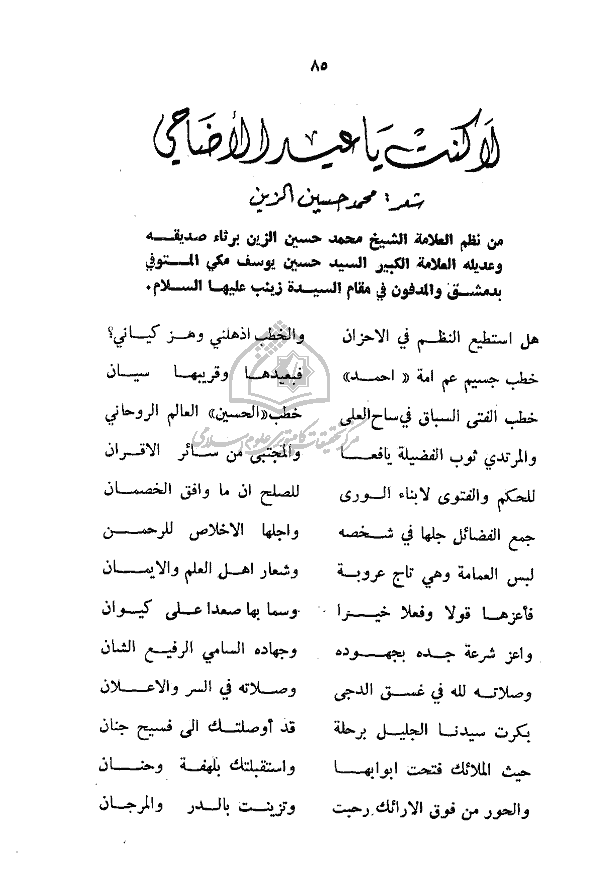 ٨٥
لا كنت يا عيد الأضاحي
شعر: محمد حسين الزين
من نظم العلامة الشيخ محمد حسين الزين برثاء صديقه
وعديله العلامة الكبير السيد حسين يوسف مكي المتوفي
بدمشق والمدفون في مقام السيدة زينب عليها السلام.
هل استطيع النظم في الاحزان والخطب اذهلني وهز كياني؟
خطب جسيم عم امة « احمد» فبعيدها وقريبها سيان
خطب الفتى السباق في ساح العلى خطب«الحسين» العالم الروحاني
والمرتدي ثوب الفضيلة يافعا والمجتبى من سائر الاقران
للحكم والفتوى لابناء الورى للصلح ان ما وافق الخصمان
جمع الفضائل جلها في شخصه واجلها الاخلاص للرحمن
لبس العمامة وهي تاج عروبة وشعار اهل العلم والايمان
فأعزها قولا وفعلا خيرا وسما بها صعدا على كيوان
واعز شرعة جده بجهوده وجهاده السامي الرفيع الشان
وصلاته لله في غسق الدجى وصلاته في السر والاعلان
بكرت سيدنا الجليل برحلة قد أوصلتك الى فسيح جنان
حيث الملائك فتحت ابوابها واستقبلتك بلهفة وحنان
والحور من فوق الارائك رحبت وتزينت بالدر والمرجان
مرکز تحقیقات کامپیوتری علوم اسلامی